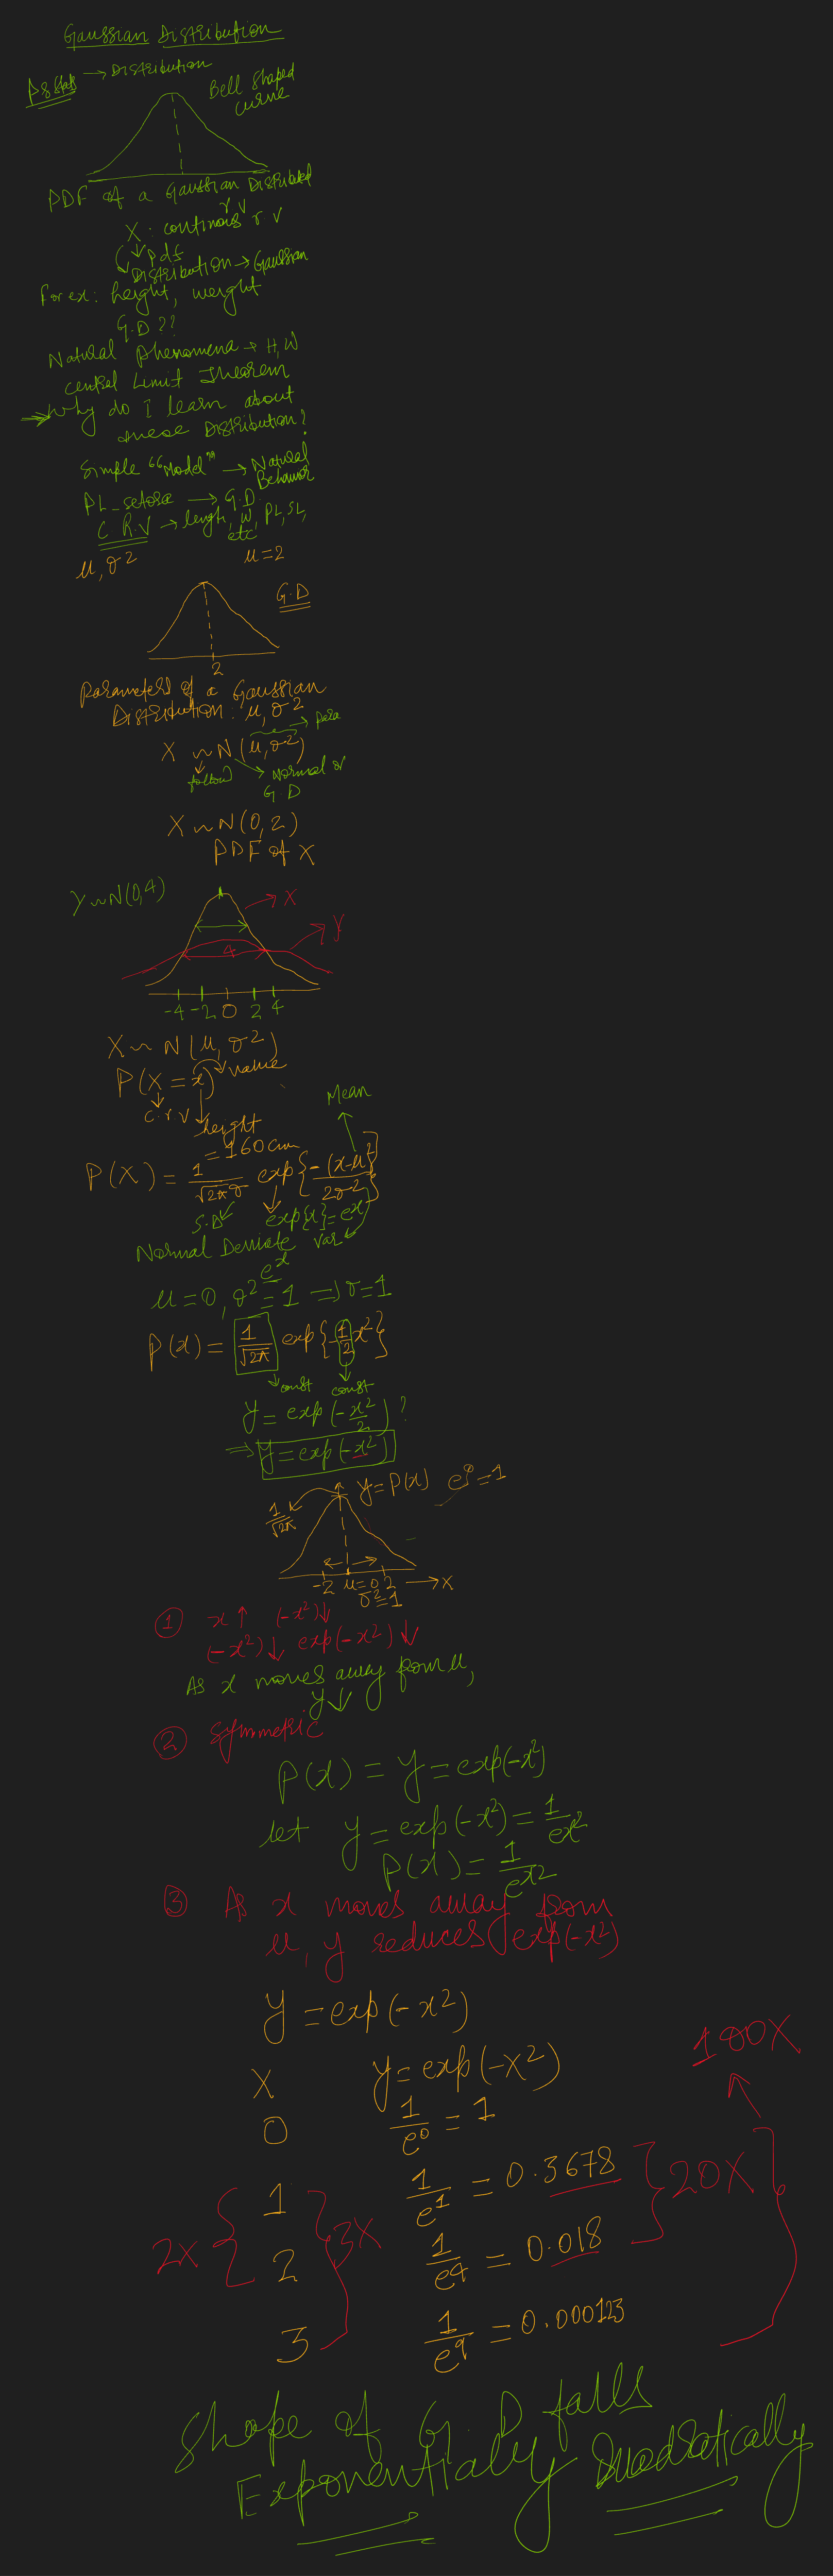 Gaussian Distribution
→ Distribution
Bell shaped
curve
PDF of a Gaussian Distributed
r v
X : continous r v
↓ pdf
Distribution → Gaussian
For ex: height, weight
G.D ??
Natural Phenomena → H, W
Central Limit Theorem
⇒ Why do I learn about
these Distribution?
Simple "Model" → Natural
Behavior
PL_setosa → G.D.
C R.V → length, W, PL, SL,
etc
μ, σ2
μ = 2
G.D
2
Parameters of a Gaussian
Distribution: μ, σ2
→ para
X ~ N(μ, σ2)
follow
Normal or
G.D
X ~ N(0, 2)
PDF of X
Y ~ N(0,4)
→ X
Y
4
-4 -2 0 2 4
X ~ N(μ, σ2)
P(X = x) → value
C.r.v
height
= 160 cm
Mean
P(X) = 1/√2π σ exp{-(x-μ)2/2σ2}
S.D
exp{x} = ex
Normal Deviate var
ex
μ = 0, σ2 = 1 ⇒ σ = 1
P(x) = 1/√2π exp{-1/2 x2}
const const
y = exp(-x2/2) ?
⇒ y = exp(-x2)
1/√2π
y = P(x) e0 = 1
-2 μ=0 2 → X
σ2 = 1
① x ↑ (-x2) ↓
(-x2) ↓ exp(-x2) ↓
As x moves away from μ,
y ↓
② Symmetric
P(x) = y = exp(-x2)
let y = exp(-x2) = 1/ex2
P(x) = 1/ex2
③ As x moves away from
μ, y reduces exp(-x2)
y = exp(-x2)
100X
X y = exp(-x2)
0 1/e0 = 1
1 1/e1 = 0.3678
2X 3X 20X
2 1/e4 = 0.018
3 1/e9 = 0.000123
Shape of G.D falls
Exponentially Quadratically